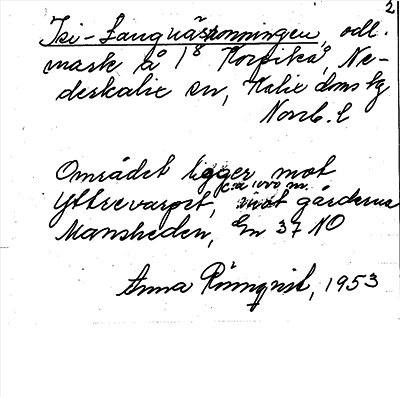 2
Isi-Långnäsrönningen, odl.
mark å 1⁸ Korpikå, Ne-
derkalix sn, Kalix domsbg
Norrb. l
Området ligger mot
c:a 1000 m.
Yttrevarpet, mot gårdarna
Mansheden, En 37 NO
Anna Rönnqvist, 1953